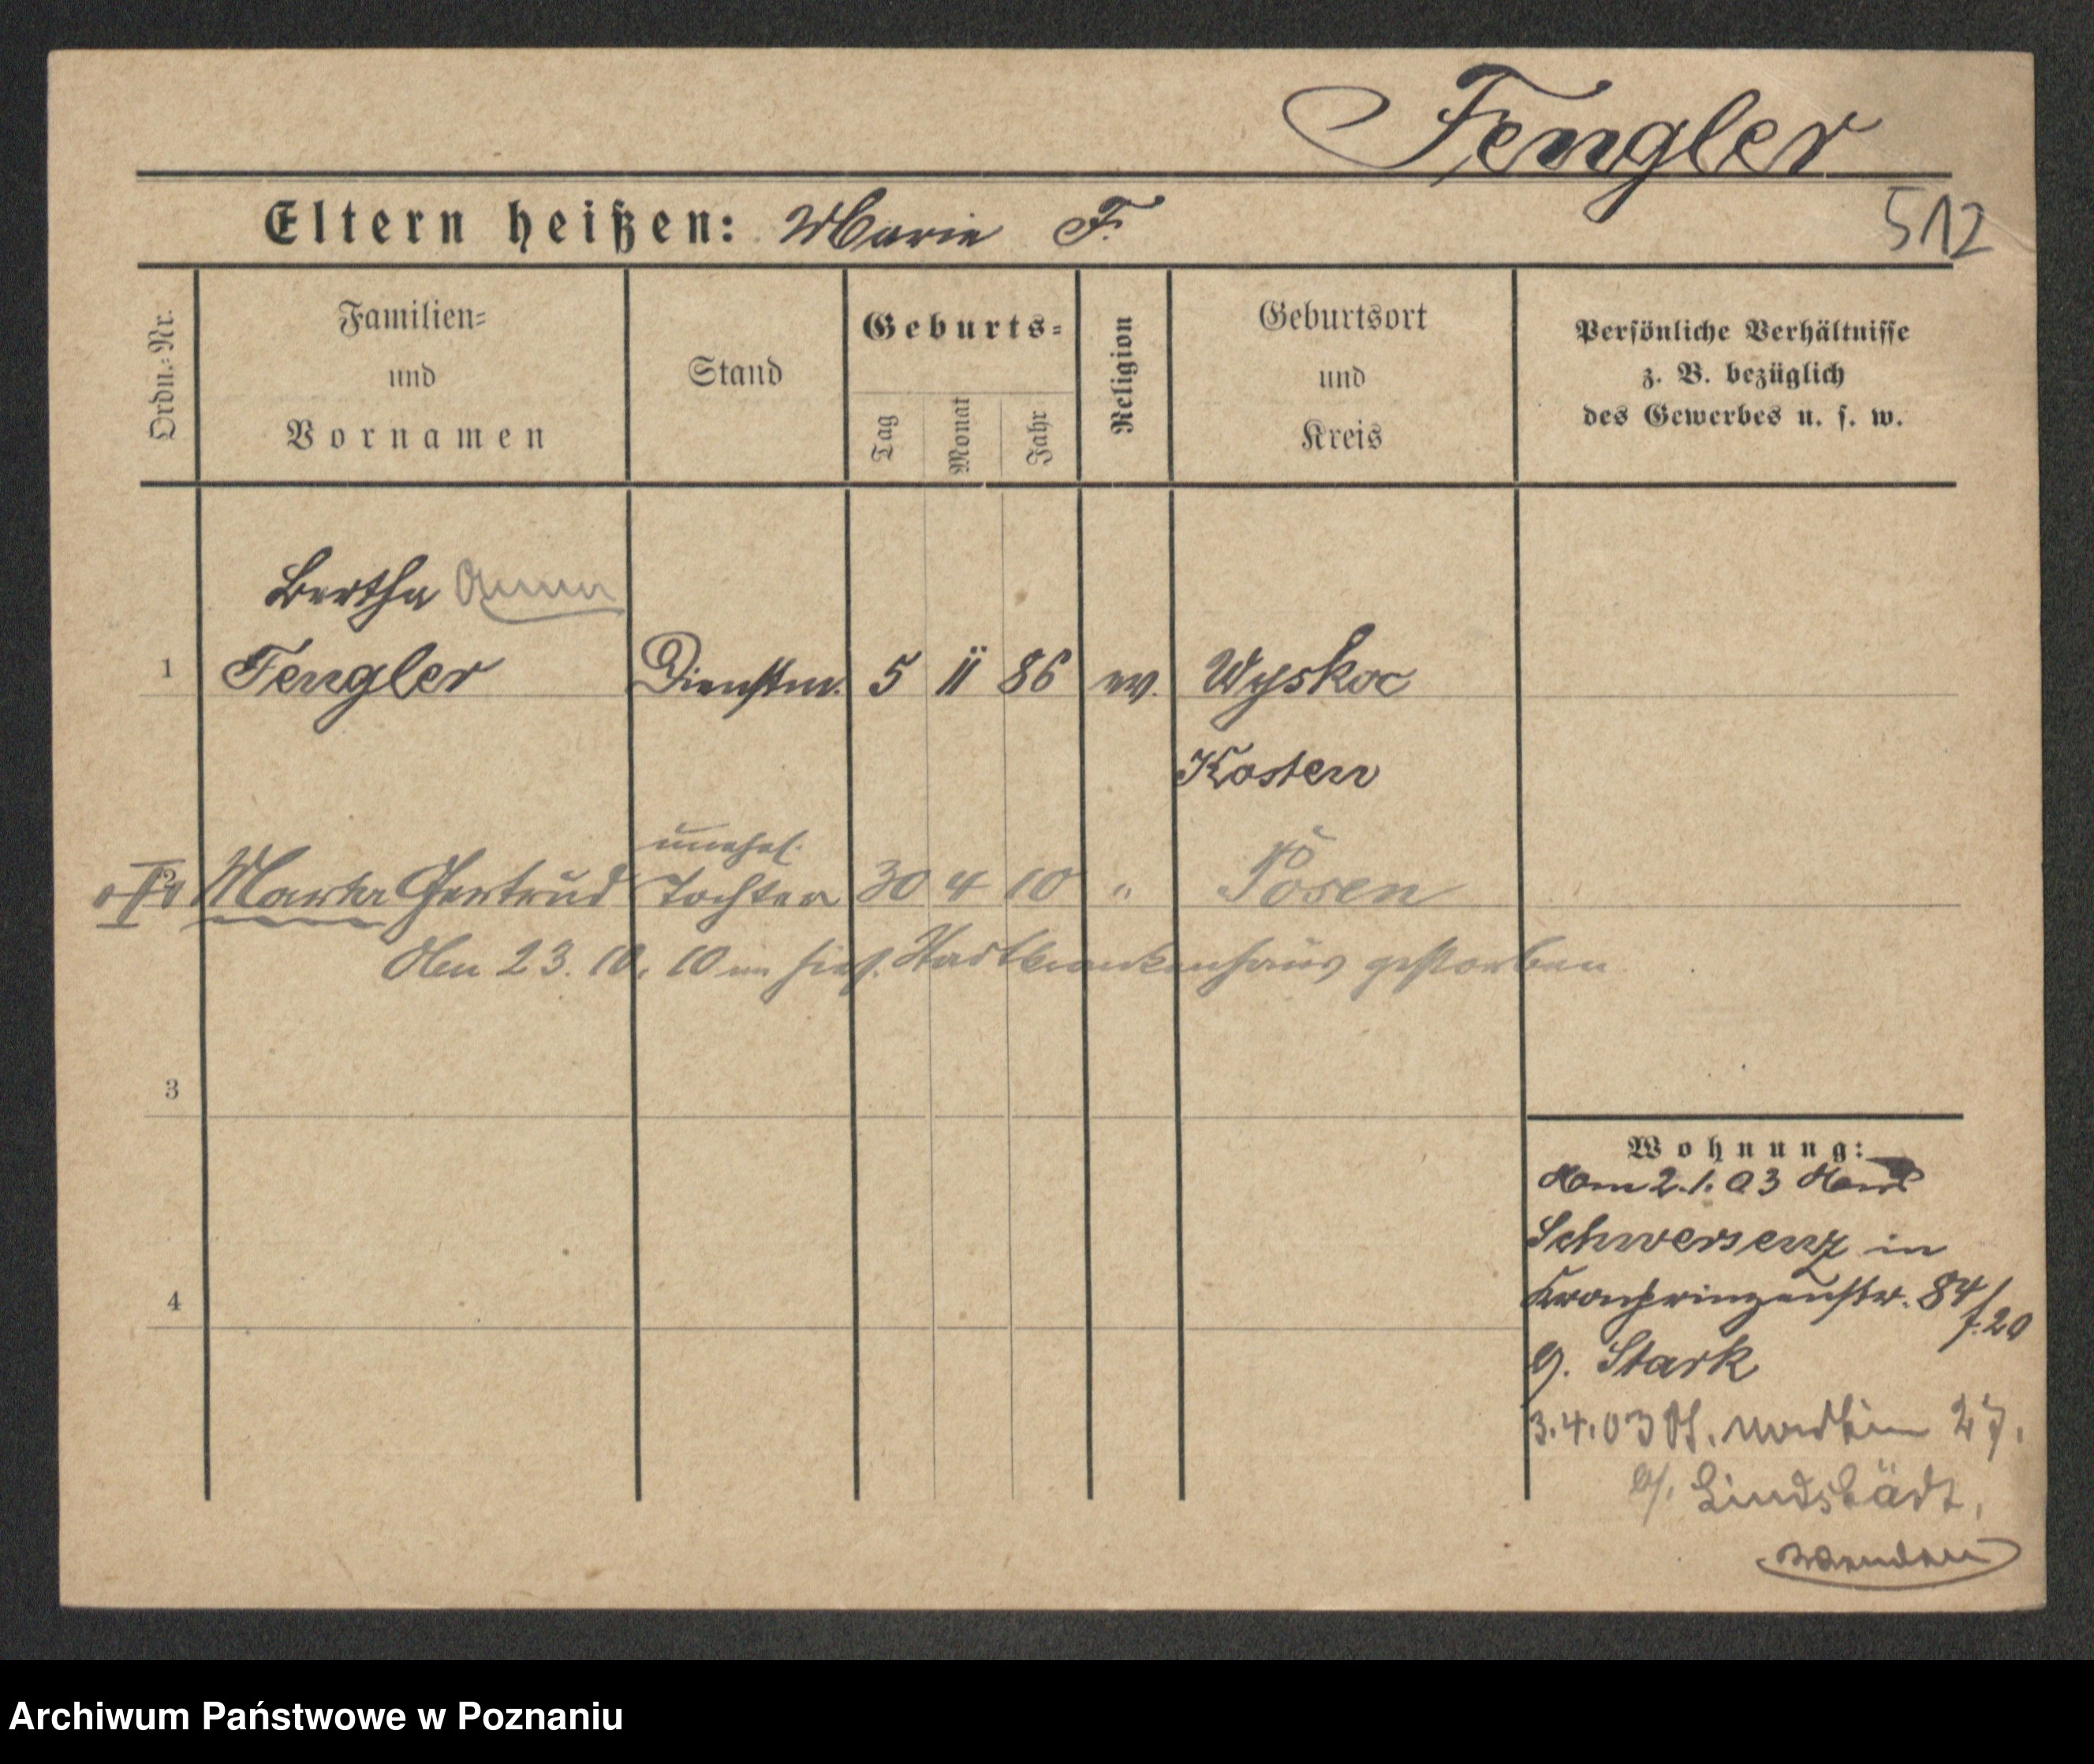 Fengler
Eltern heißen: Marie F.
512
Ordn.-Nr.
Familien-
und
Vornamen
Stand
Geburts-
Tag
Monat
Jahr
Religion
Geburtsort
und
Kreis
Persönliche Verhältnisse
z. B. bezüglich
des Gewerbes u. s. w.
Bertha Anna
1 Fengler Dienstm. 5 11 86 ev. Wyskoc
Kosten
unehel.
Martha Gertrud Tochter 30 4 10 " Posen
Am 23. 10. 10 im hies. Stadtkrankenhaus gestorben
3
4
Wohnung:
2.1.03
Schwersenz in
Kronprinzenstr. 84
f. 20
b. Stark
3.4.03 27.
b. Lindstädt.
Archiwum Państwowe w Poznaniu